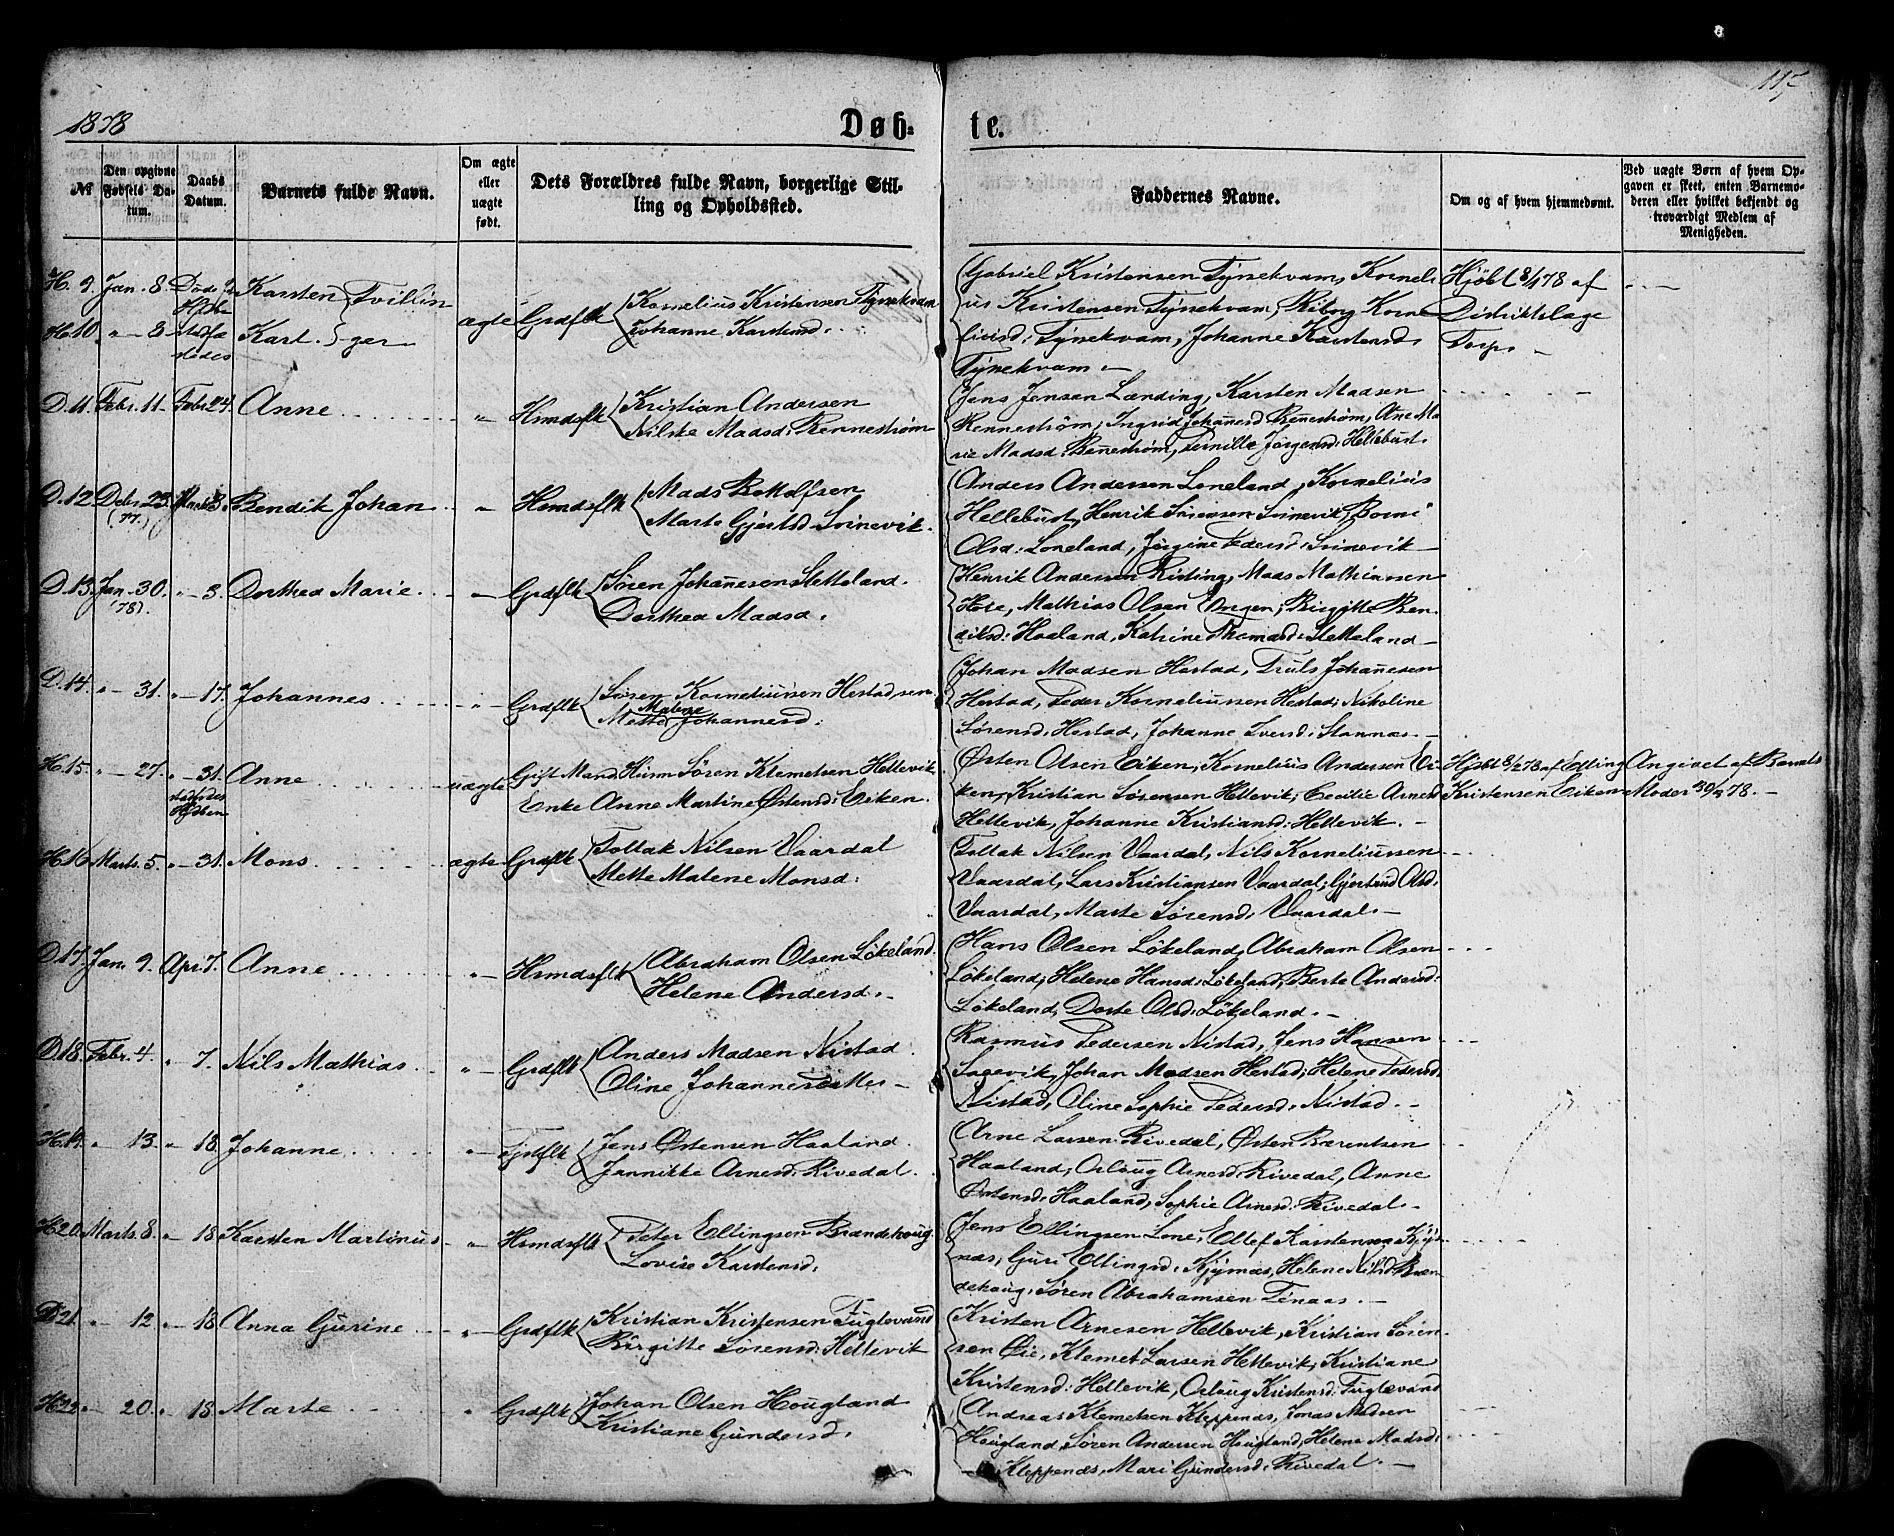 115
1878
Døb-
te.
№
Den opgivne Fødsels Datum.
Daabs Datum.
Barnets fulde Navn.
Om ægte eller uægte født.
Dets Forældres fulde Navn, borgerlige Stilling og Opholdssted.
Faddernes Navne.
Om og af hvem hjemmedømt.
Ved uægte Børn af hvem Opgaven er skett, enten Barnemoderen eller hvilket bekjendt og troværdigt Medlem af Menigheden.
H. 9. Jan. 8. Karsten } Tvillin
H. 10. " - 8. Karl. } ger
ægte Grdflk { Kornelius Kristensen Tynekvam
Johanne Karstensd.
Gabriel Kristensen Tynekvam, Korneli-
us Kristensen Tynekvam, Korne
liusd: Tynekvam, Johanne Karstensd.
Tynekvam. -
Hjdbt 8/1 78 af
Distriktslæge
Torp. -
D. 11. Febr. 11. Febr. 24. Anne " Hsmdsflk { Kristian Andersen
Madsd: Rennestrøm
Jens Jensen Lænding, Karsten Madsen
Rennestrøm, Ingrid Johansd Rennestrøm, Ane Ma
rie Madsd: Rennestrøm, Pernille Jørgensd: Hellebust.
D. 12. Debr 23. (77.) Marts 3. Bendik Johan " Hsmdsflk { Mads Bottolfsen
Marte Gjertsd Svinevik.
Anders Andersen Loneland, Kornelius
Hellebust, Henrik Svinevik,
Olsd: Loneland, Jørgine Pedersd: Svinevik -
D. 13. Jan. 30. (78). " - 3. Dorthea Marie " - Grdflk { Søren Johannesen Stetteland.
Dorthea Madsd.
Henrik Andersen Risting, Mads Mathiassen
Mathias Olsen Birgitte Ben-
diksd: Haaland, Katrine Thomasd: Stetteland -
D. 14. " - 31. " - 17. Johannes " - Grdflk { Søren Korneliussen Hestad
Mette Malene Johannesd:
Johan Madsen Hestad, Truls Johannesen
Hestad, Peder Korneliussen Hestad, Nikoline
Sørensd: Hestad, Johanne Iversd: -
H. 15. " - 27. " - 31. Anne uægte Gift Mand Søren Klemetsen Hellevik
Enke Anne Martine Østensd: Eiken.
Østen Olsen Eiken, Kornelius Andersen Ei-
ken, Kristian Sørensen Hellevik, Cecilie Arnesd
Hellevik, Johanne Kristiansd: Hellevik. -
Hjdbt 8/2 78 af Elling
Kristensen Eiken
Angivet af Barnets
Moder 30/3 78. -
H. 16. Marts. 5. " - 31. Mons. ægte Grdflk { Tollak Nilsen Vaardal
Mette Malene Monsd:
Tollak Nilsen Vaardal, Nils Korneliussen
Vaardal, Lars Kristiansen Vaardal; Gjertrud Olsd:
Vaardal, Marte Sørensd: Vaardal. -
D. 17. Jan. 9. Apr. 7. Anne " - Hsmdsflk { Abraham Olsen Løkeland.
Helene Andersd.
Hans Olsen Løkeland, Abraham Olsen
Løkeland; Helene Hansd: Løkeland, Berte Andersd:
Løkeland, Dorte Olsd: Løkeland. -
D. 18. Febr. 4. " 7. Nils Mathias " - Grdflk { Anders Madsen Nistad.
Oline Johannesdatter -
Rasmus Pedersen Nistad, Jens Hansen
Sagevik, Johan Madsen Hestad; Helene Pedersd:
Nistad, Oline Sophie Pedersd: Nistad. -
H. 19. " 13. " 18. Johanne " - { Jens Østensen Haaland.
Jannikke Arnesd: Rivedal.
Arne Larsen Rivedal, Østen Bærentsen
Haaland, Oslaug Arnesd: Rivedal, Anne
Østensd: Haaland, Sophie Arnesd: Rivedal. -
H. 20. Marts. 8. " - 18. Karsten Martinus " - Hsmdsflk { Peter Ellingsen Brandshoug.
Lovise Karstensd:
Jens Ellingsen Lone, Ellef Karstensen
næs, Guri Ellingsd: Helene Nilsd: Bran-
dshaug, Søren Abrahamsen -
D. 21. " - 12. " - 18. Anna Gurine " - Grdflk { Kristian Kristensen Fuglevand
Birgitte Sørensd: Hellevik
Kristen Arnesen Hellevik, Kristian Søren-
sen Øie, Klemet Larsen Hellevik, Kristiane
Kristensd: Hellevik, Oslaug Kristensd: Fuglevand
H. 22. " 20. " - 18. Marte " Grdflk { Johan Olsen Hougland
Kristiane Gundersd.
Andreas Klemetsen Kleppenæs, Jonas Madsen
Hougland, Søren Andersen Hougland, Helene Madsd:
Kleppenæs, Mari Gundersd: Rivedal. -